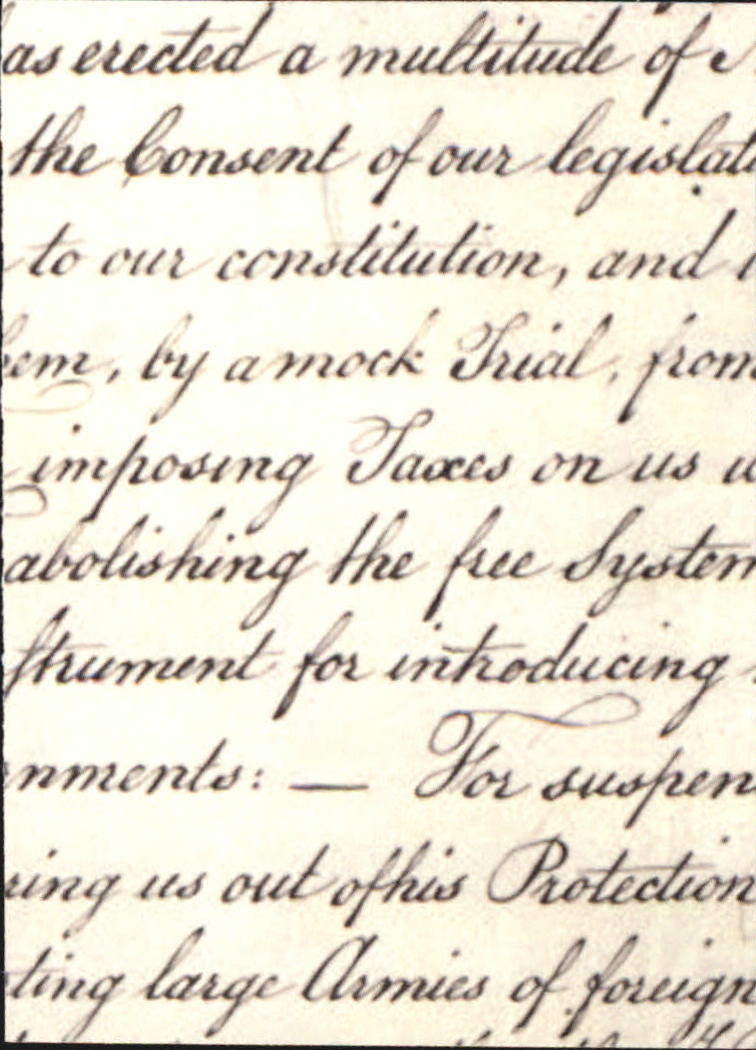 as erected a multitude of
the Consent of our legislat
to our constitution, and
hem, by a mock Trial, from
imposing Taxes on us w
abolishing the free System
strument for introducing
nments: — For suspen
ring us out of his Protection
ting large Armies of foreign